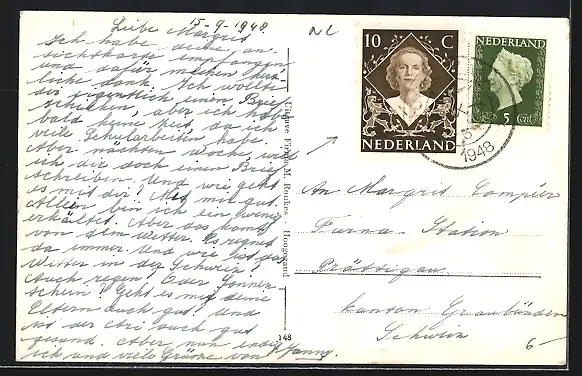 15-9-1948.
Liebe Margrid
Ich habe deine an-
sichtskarte empfangen
und dafür meinen herz-
liche dank. Ich wollte
dir eigentlich einen Brief
schicken, aber ich habe
bald keine Zeit, da ich
viele Schularbeiten habe.
Aber nächsten woche, will
ich dir doch einen Brief
schreiben. Und wie geht
es mit dir? Mit mir gut.
Allein bin ich ein wenig
erkältet. Aber das kommt
von dem wetter. Es regnet
da immer. Und wie ist das
Wetter in der Schweiz?
Auch regen? Oder Sonnen-
schein? Geht es mit deine
Eltern auch gut? Und
mit der auch gut
gesund. Aber nun endige
ich und viele Grüsse von Fanny.
Uitgave Firma M. Roukes - Hoogezand
148
NL
10 C
NEDERLAND
NEDERLAND
5 CENT
1948
An Margrid
Furna-Station
Prättigau.
Kanton Graubünden
Schweiz
6-